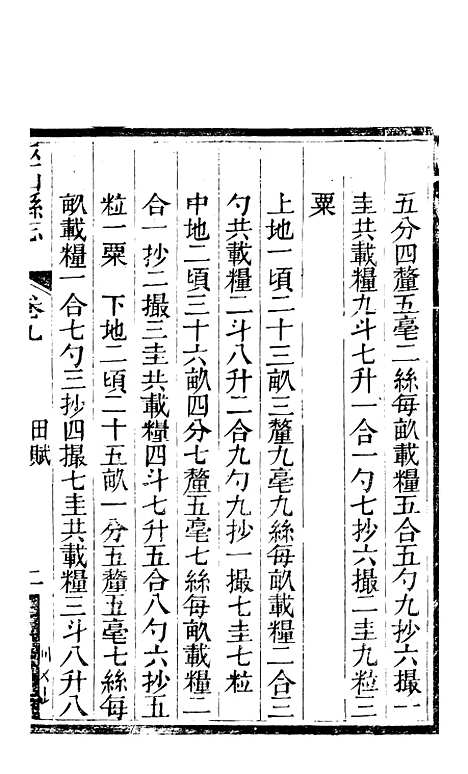 五分四釐五毫二絲每畝載糧五合五勺九抄六撮一
圭共載糧九斗七升一合一勺七抄六撮二圭九粒三
粟
上地一頃二十三畝三釐九毫九絲每畝載糧二合三
勺共載糧二斗八升二合九勺九抄一撮七圭七粒
中地二頃三十六畝四分七釐五毫七絲每畝載糧二
合一抄二撮三圭共載糧四斗七升五合八勺六抄五
粒一粟 下地二頃二十五畝一分五釐五毫七絲每
畝載糧一合七勺三抄四撮七圭共載糧三斗八升八
山縣志 卷九 田賦